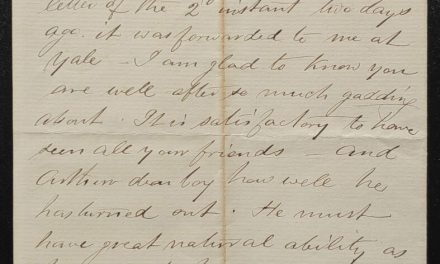 letter of the 2d instant two days
ago. it was forwarded to me at
Yale – I am glad to know you
are well after so much gadding
about. It is satisfactory to have
seen all your friends – and
Arthur dear boy how well he
has turned out. He must
have great natural ability as